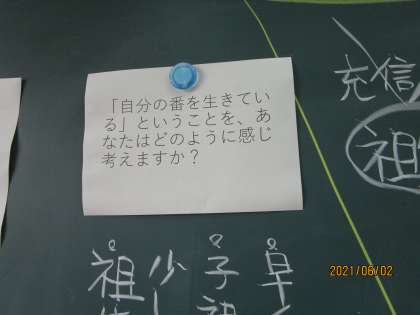 「自分の番を生きてい
る」ということを、あ
なたはどのように感じ
考えますか？
充信
祖
祖
少し
子
早
2021/06/02